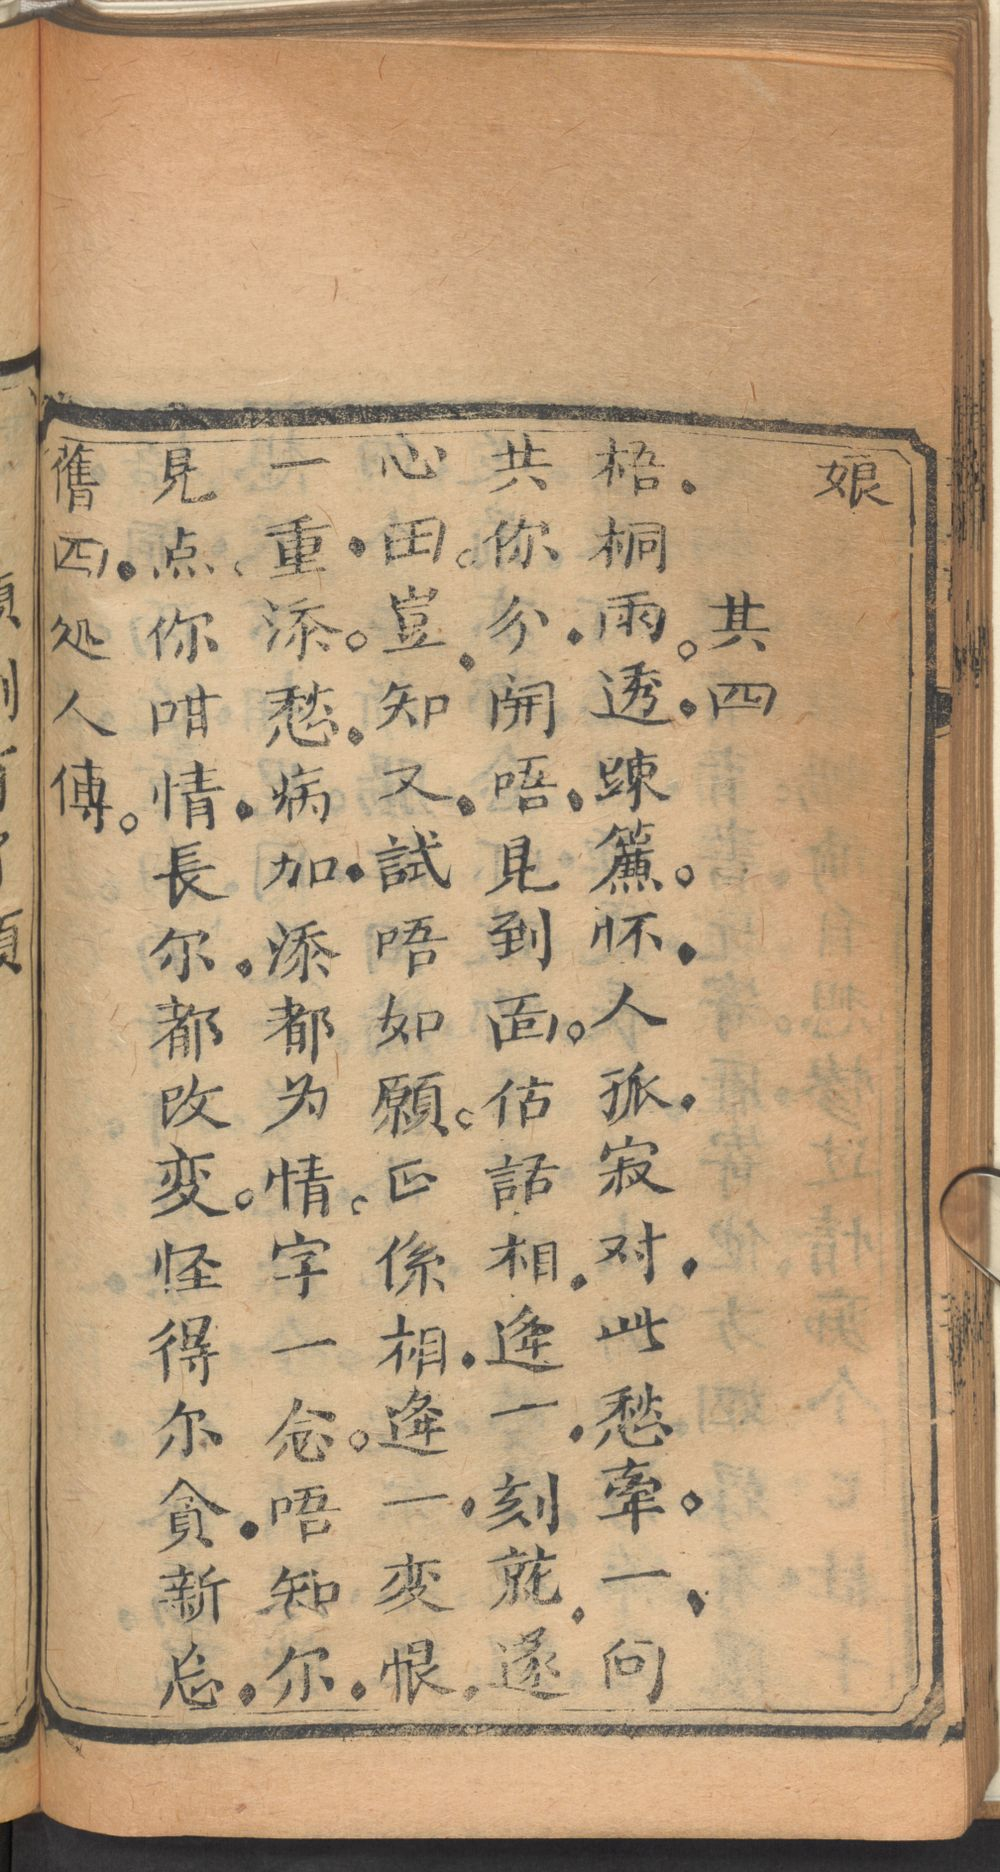 娘
其四
梧桐雨透踈簾。怀人孤寂对此愁牽。一问
共你分開唔見到面。估話相逢一刻就遂
心田。豈知又試唔如願。正係相逢一変恨
一重添。愁病加添都为情字一念。唔知尔
見点。你咁情長尔都改变。怪得尔貪新忘
舊四処人傳。